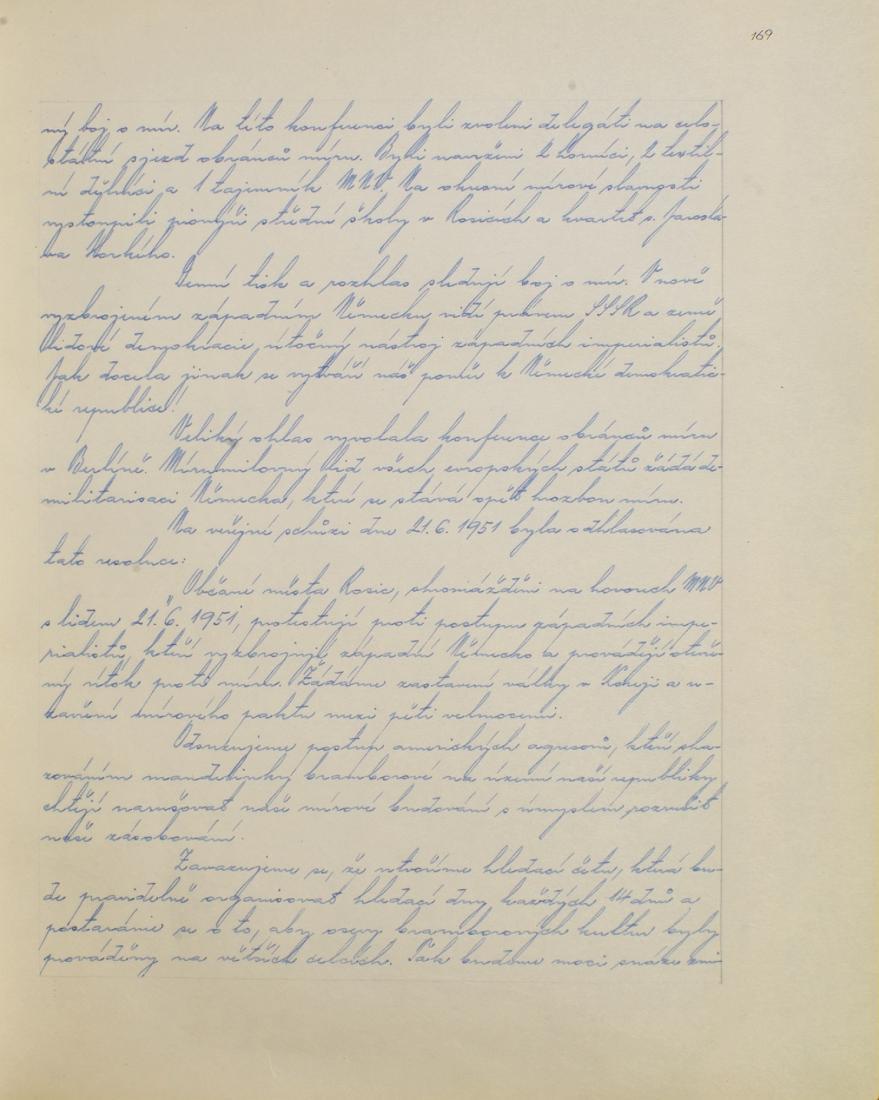 169
ný boj o mír. Na této konferenci byli zvoleni delegáti na celo-
státní sjezd obránců míru. Byli navrženi 2 horníci, 2 textil-
ní dělníci a 1 tajemník MNV. Na okresní mírové slavnosti
vystoupili pionýři střední školy v Rosicích a kvartet s. Jarosla-
va Horkého.
Denní tisk a rozhlas sledují boj o mír. V nově
vyzbrojeném západním Německu vidí právem SSSR a země
lidové demokracie útočný nástroj západních imperialistů.
Jak docela jinak se vytváří náš poměr k Německé demokratic-
ké republice!
Veliký ohlas vyvolala konference obránců míru
v Berlíně. Mírumilovný lid všech evropských států žádá de-
militarisaci Německa, které se stává opět hrozbou míru.
Na veřejné schůzi dne 21.6.1951 byla odhlasována
tato resoluce:
„Občané města Rosic, shromáždění na hovorech MNV
s lidem 21.6.1951, protestují proti postupu západních impe-
rialistů, kteří vyzbrojují západní Německo a provádějí otevře-
ný útok proti míru. Žádáme zastavení války v Koreji a u-
zavření mírového paktu mezi pěti velmocemi.
Odsuzujeme postup amerických agresorů, kteří sha-
zováním mandelinky bramborové na území naší republiky
chtějí narušovat naše mírové budování s úmyslem rozvrátit
naše zásobování.
Zavazujeme se, že utvoříme hledací četu, která bu-
de pravidelně organisovat hledací dny každých 14 dnů a
postaráme se o to, aby osevy bramborových kultur byly
prováděny na větších celcích. Tak budeme moci snáze zni-